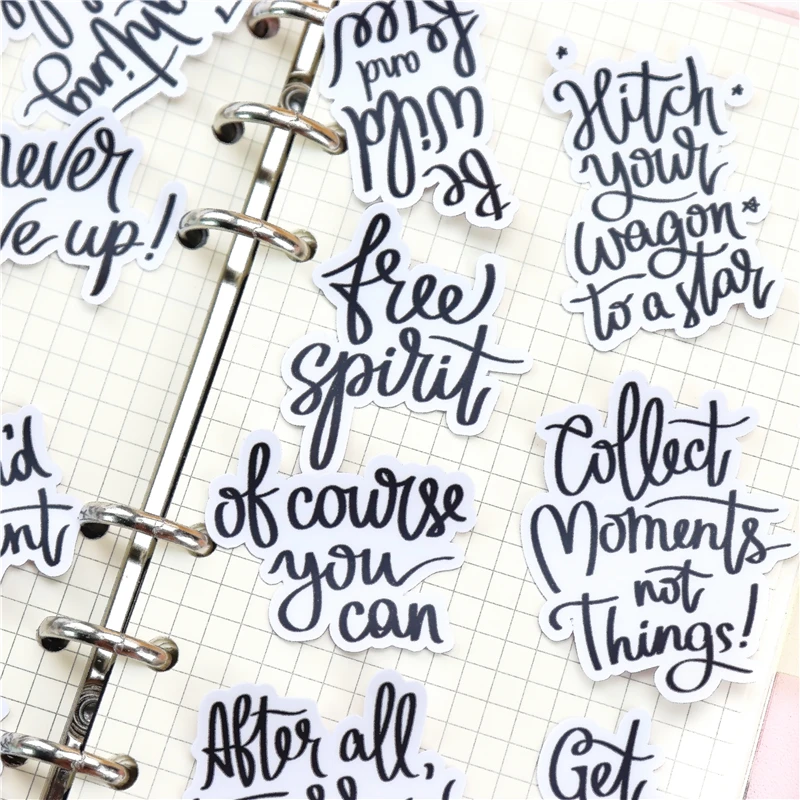 never
up!
Be
wild
and
free
Hitch
your
wagon
to a star
free
spirit
of course
you
can
Collect
Moments
not
Things!
After all,
Get